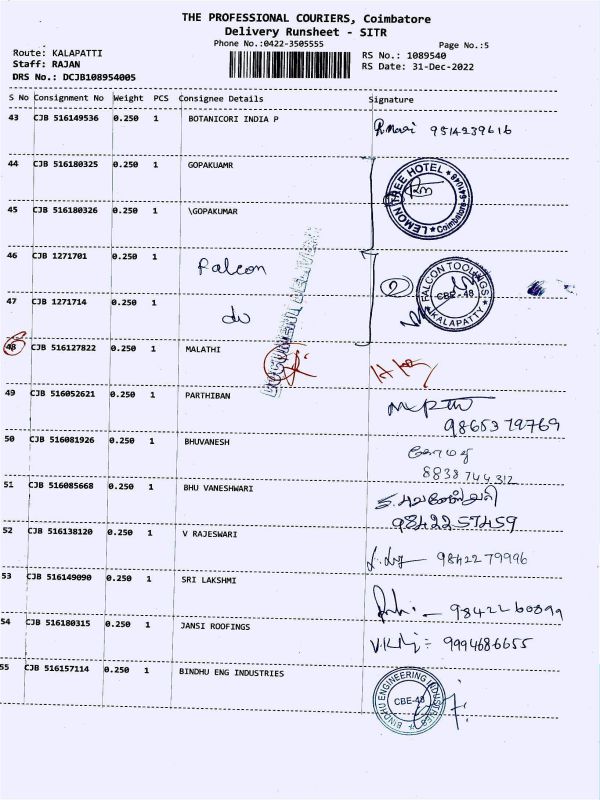 THE PROFESSIONAL COURIERS, Coimbatore
Delivery Runsheet - SITR
Phone No.:0422-3505555
Page No.:5
Route: KALAPATTI
RS No.: 1089540
Staff: RAJAN
RS Date: 31-Dec-2022
DRS No.: DCJB108954005
S No Consignment No Weight PCS Consignee Details Signature
43 CJB 516149536 0.250 1 BOTANICORI INDIA P 9514239616
44 CJB 516180325 0.250 1 GOPAKUAMR
LEMON TREE HOTEL Coimbatore-641048
45 CJB 516180326 0.250 1 \GOPAKUMAR
46 CJB 1271701 0.250 1 Falcon
FALCON TOOLINGS CBE-48 KALAPATTY
47 CJB 1271714 0.250 1 do
48 CJB 516127822 0.250 1 MALATHI
49 CJB 516052621 0.250 1 PARTHIBAN
9865379769
50 CJB 516081926 0.250 1 BHUVANESH கோமதி
8838744312
51 CJB 516085668 0.250 1 BHU VANESHWARI
9842257459
52 CJB 516138120 0.250 1 V RAJESWARI 9842279996
53 CJB 516149090 0.250 1 SRI LAKSHMI
9842260899
54 CJB 516180315 0.250 1 JANSI ROOFINGS 9994686655
55 CJB 516157114 0.250 1 BINDHU ENG INDUSTRIES
BINDHU ENGINEERING INDUSTRIES CBE-48